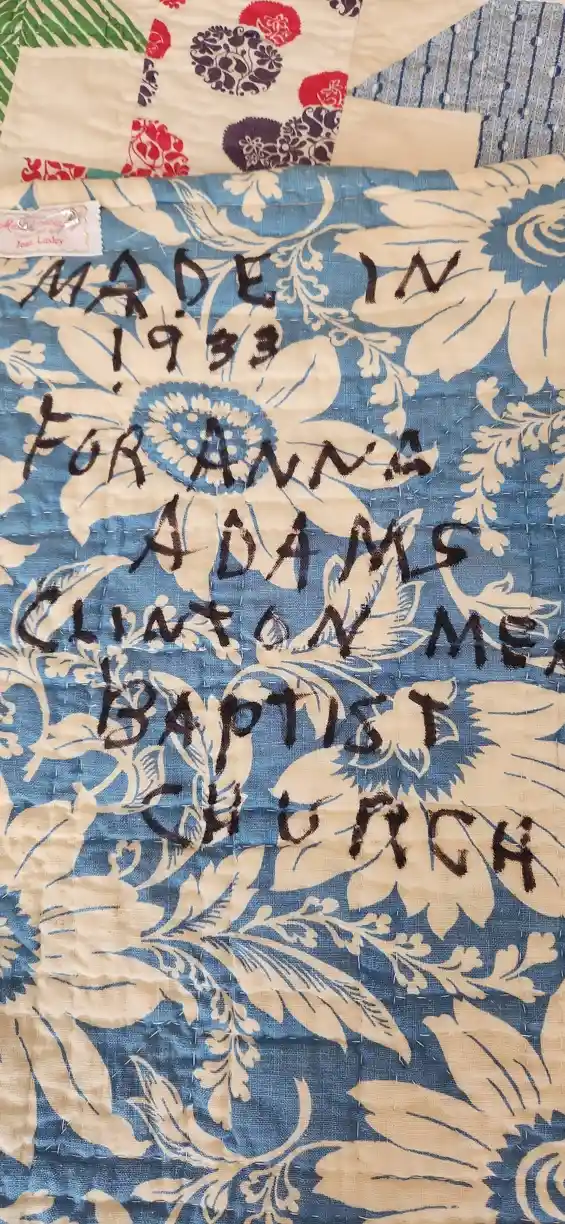 Jean Linsley
MADE IN
1933
FOR ANNA
ADAMS
CLINTON MEM
BAPTIST
CHURCH